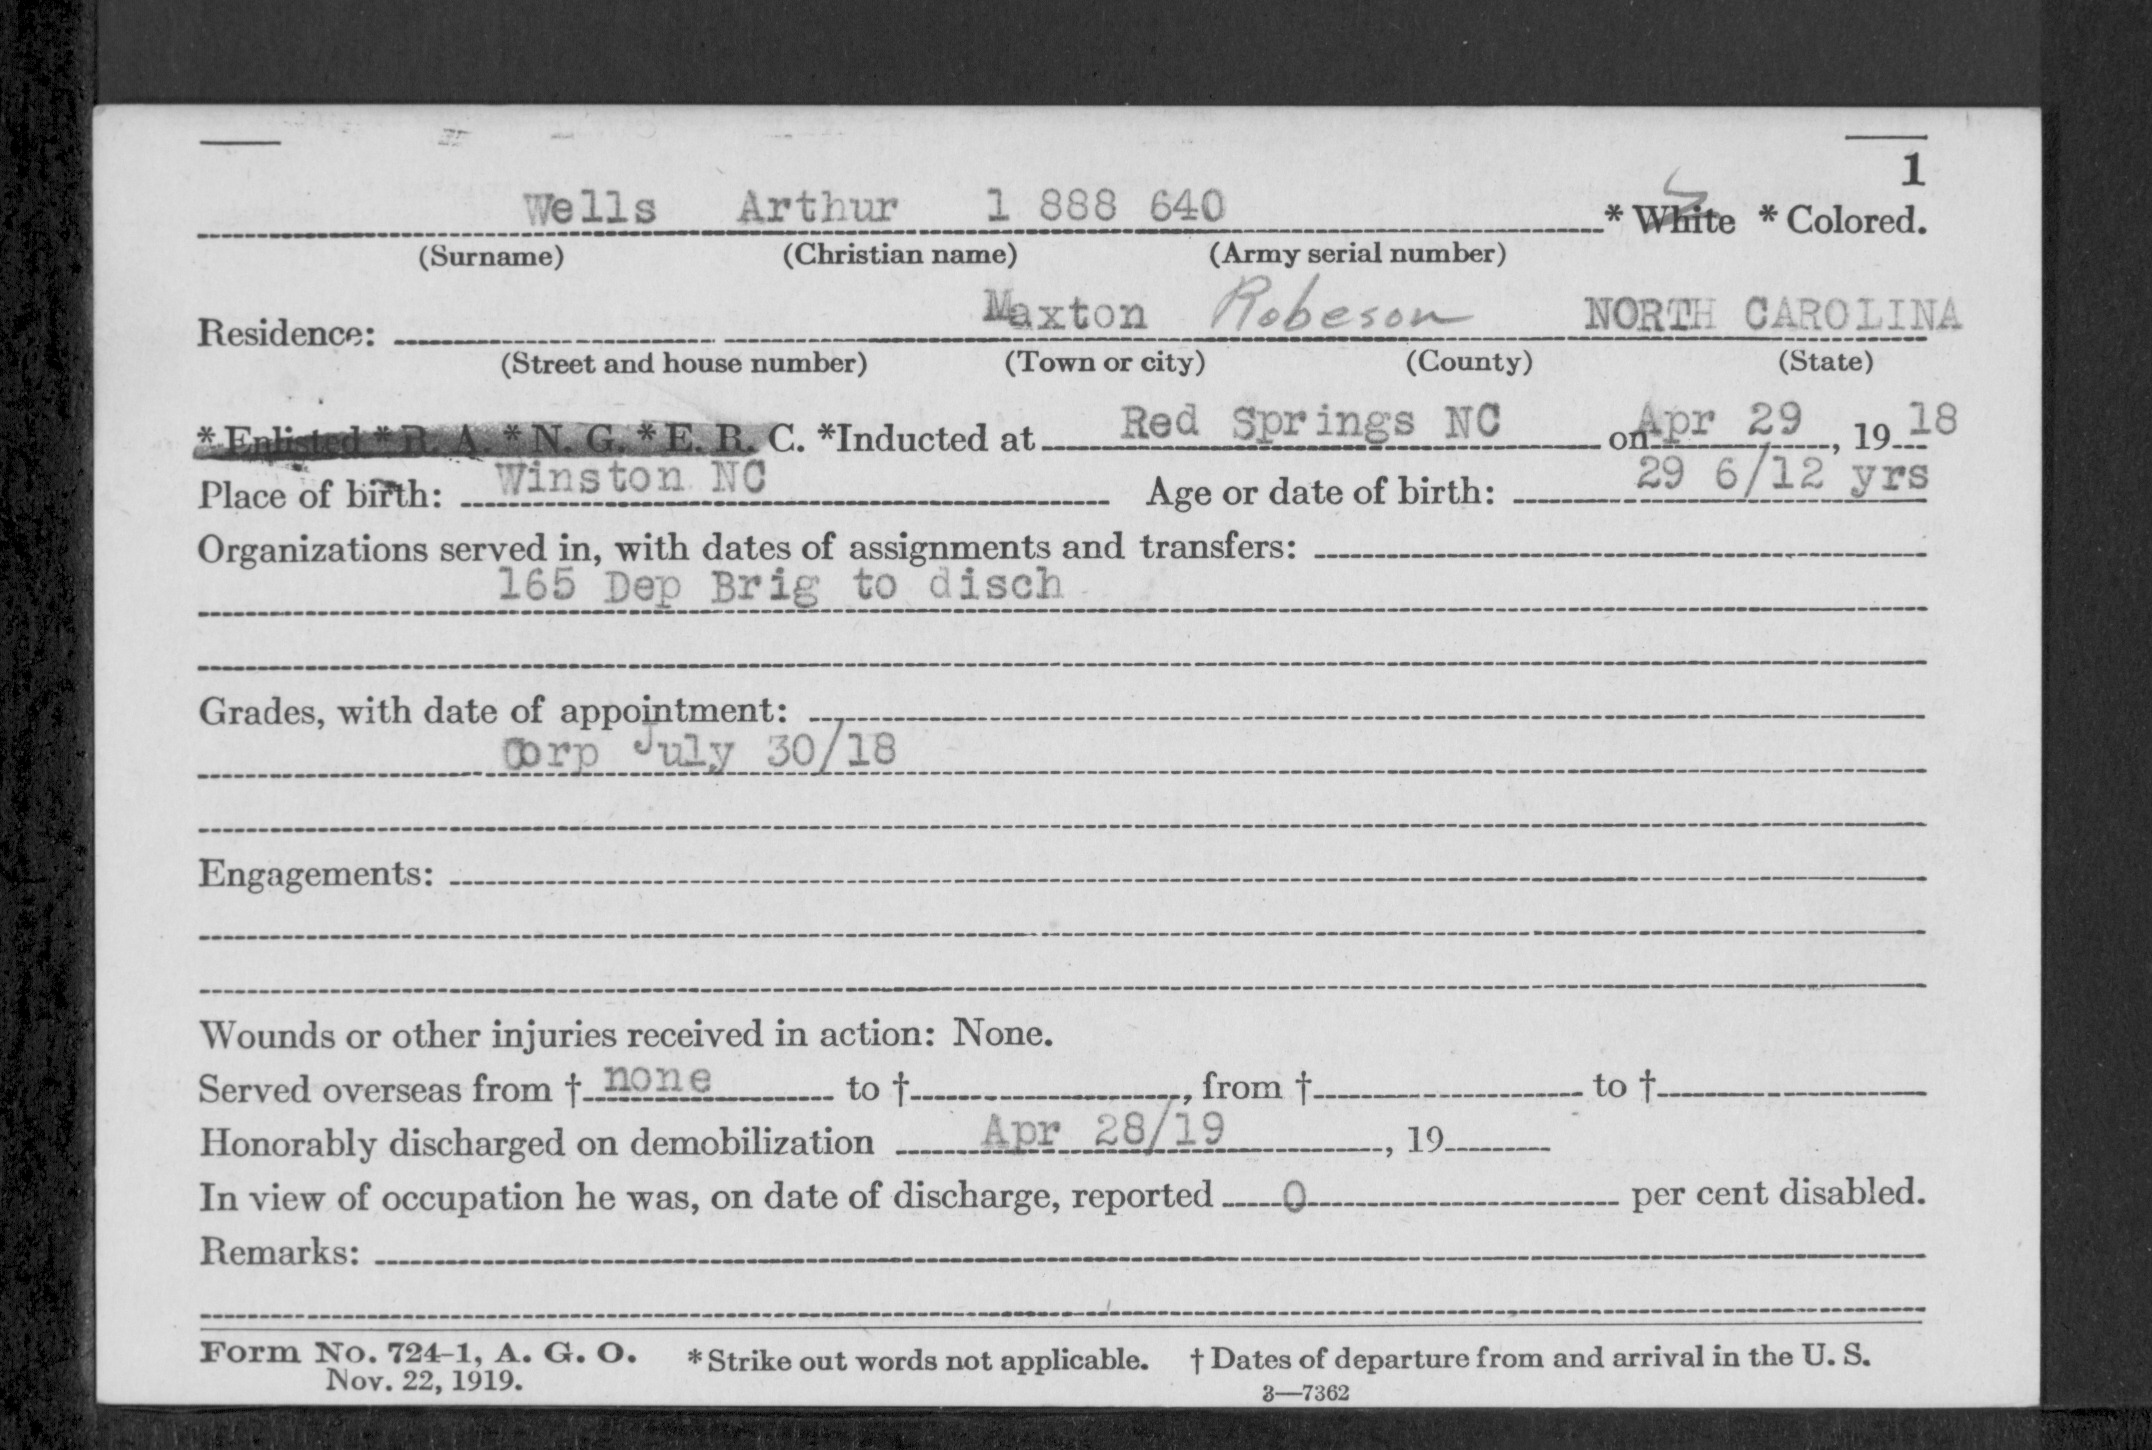 1
Wells Arthur 1 888 640 * White * Colored.
(Surname) (Christian name) (Army serial number)
Residence: Maxton Robeson NORTH CAROLINA
(Street and house number) (Town or city) (County) (State)
* Enlisted * R. A. * N. G. * E. R. C. *Inducted at Red Springs NC on Apr 29, 19 18
Place of birth: Winston NC Age or date of birth: 29 6/12 yrs
Organizations served in, with dates of assignments and transfers:
165 Dep Brig to disch
Grades, with date of appointment:
Corp July 30/18
Engagements:
Wounds or other injuries received in action: None.
Served overseas from † none to †, from † to †
Honorably discharged on demobilization Apr 28/19, 19
In view of occupation he was, on date of discharge, reported 0 per cent disabled.
Remarks:
Form No. 724-1, A. G. O. * Strike out words not applicable. † Dates of departure from and arrival in the U. S.
Nov. 22, 1919. 3—7362